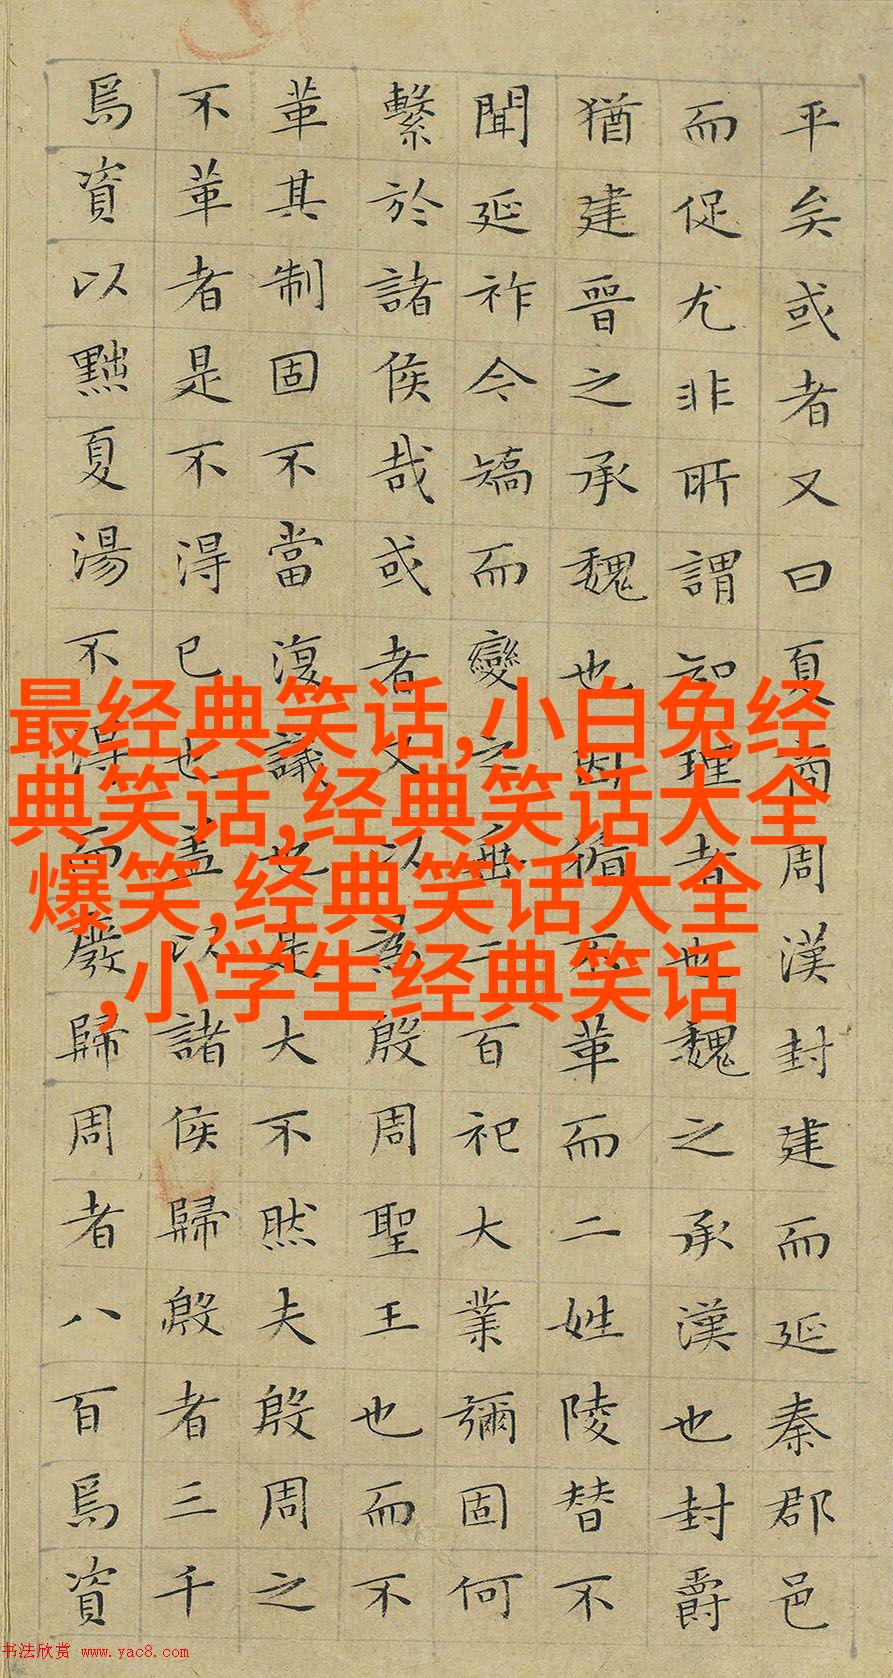 平矣或者又曰夏商周漢封建而延秦郡邑
而促尤非所謂知理者也魏之承漢也封爵
猶建晉之承魏也因循不革而二姓陵替不
聞延祚今矯而變之垂二百祀大業彌固何
繫於諸侯哉或者又以為殷周聖王也而不
革其制固不當復議也是大不然夫殷周之
不革者是不得已也蓋以諸侯歸殷者三千
焉資以黜夏湯不得而廢歸周者八百焉資
最经典笑话,小白兔经
典笑话,经典笑话大全
爆笑,经典笑话大全
,小学生经典笑话
书法欣赏 www.yac8.com